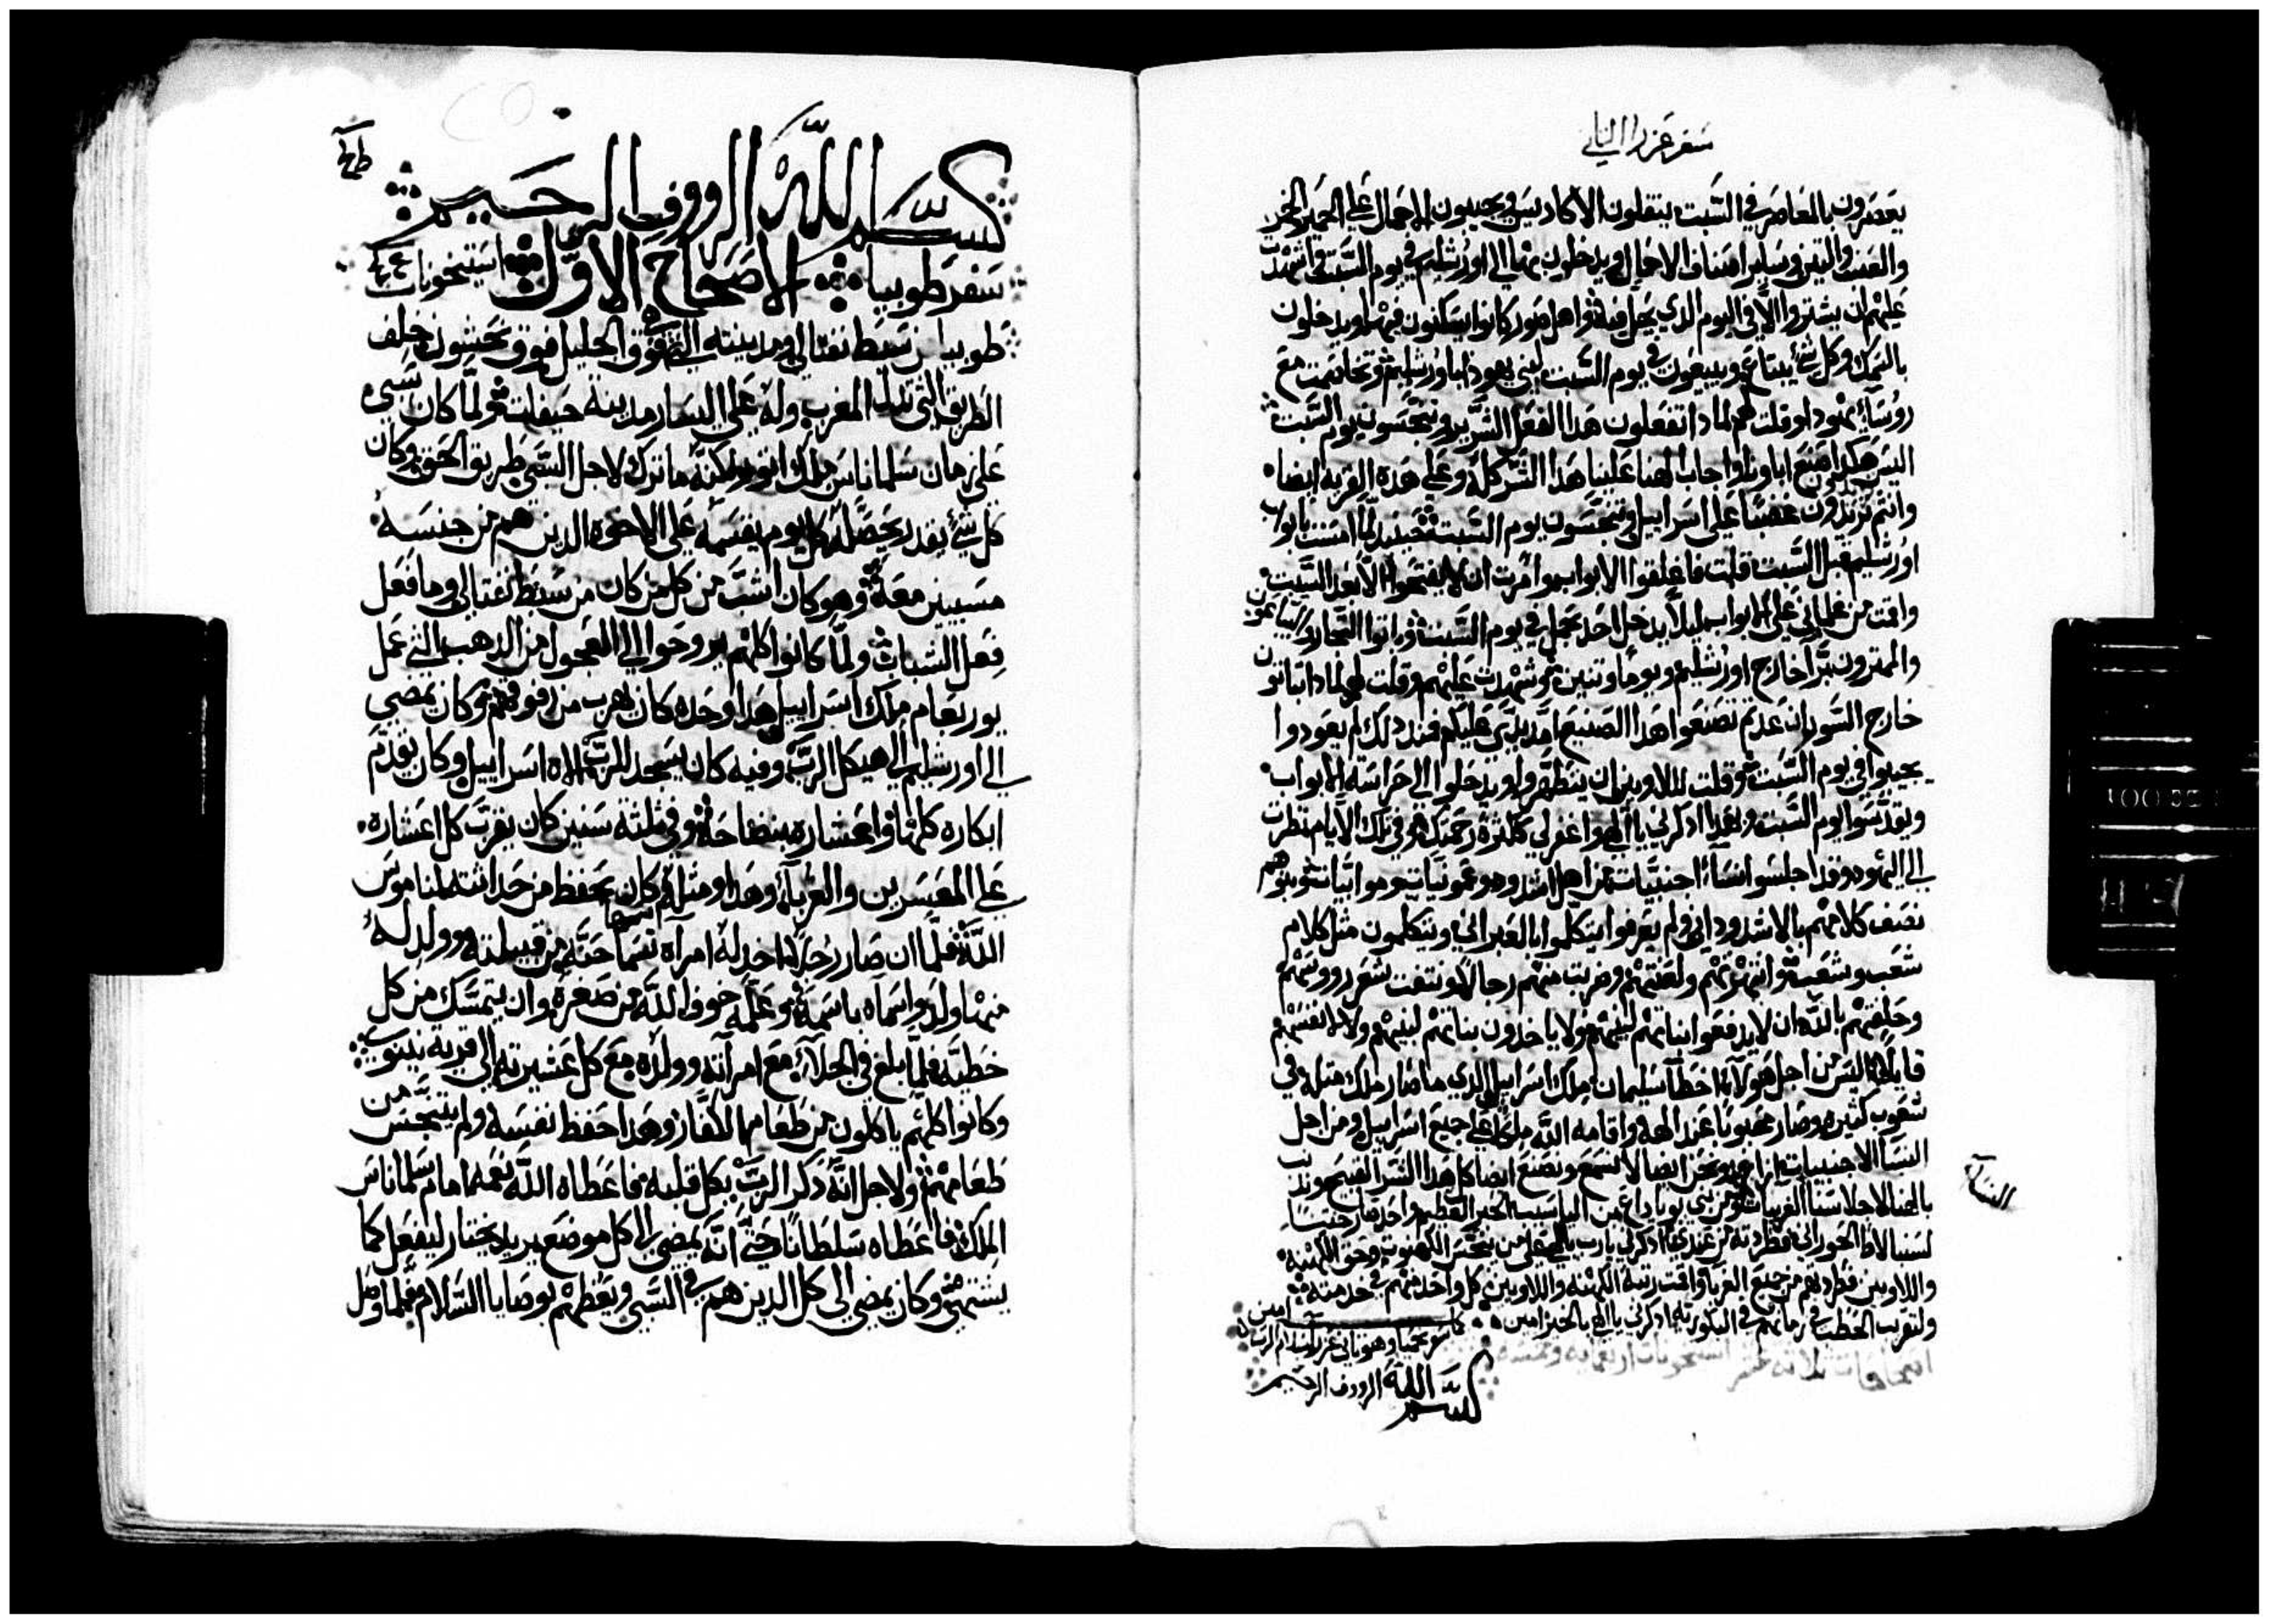 سفر عزرا الثاني
يعصرون بالمعاصر في السبت ينقلون الاكاديس ويجيبون الاحمال علي الحمير الخمر
والعنب والتين وساير اصناف الاحمال ويدخلون بها الي اورشليم في يوم السبت واشهدت
عليهم ان يشتروا الا في اليوم الدي يحل فيه واهل صور كانوا يسكنون فيها ويدخلون
بالسمك وكل شي يبتاع ويبيعون في يوم السبت لبني يهودا باورشليم وتخاصمت مع
روساء يهودا وقلت لهم لمادا تفعلون هدا الفعل الشرير وتنجسون يوم السبت
اليس هكدا صنع اباونا واجاب الهنا علينا هدا الشر كله وعلي هده القريه ايضا
وانتم تزيدون غضبا علي اسراييل وتنجسون يوم السبت فحينيد لما امست ابواب
اورشليم قبل السبت قلت فاغلقوا الابواب وامرت ان لا يفتحوها الا بعد السبت
واقمت من غلماني علي الابواب ليلا يدخل احد بحمل في يوم السبت وباتوا التجار والبياعون
والممترون برا خارج اورشليم يوما وتنين وشهدت عليهم وقلت لهم لمادا تباتون
خارج السور ان عدتم تصنعوا هدا الصنيع امد يدي عليكم فمند دلك لم يعودوا
يجيوا في يوم السبت وقلت لللاويين ان يتطهروا ويدخلوا الي حراسة الابواب
ويقدسوا يوم السبت وبهدا ادكرني يا الهي واغفر لي ككثرة رحمتك وفي تلك الايام نظرت
الي اليهود وقد اجلسوا نساء اجنبيات من اهل اشدود وعمونيات وموابيات وبنوهم
نصف كلامهم بالاشدوداني ولم يعرفوا يتكلموا بالعبراني ويتكلمون مثل كلام
شعب وشعب وانتهرتهم ولعنتهم وضربت منهم رجالا ونتفت شعر رووسهم
وحلفتهم بالله ان لا يدفعوا بناتهم لبنيهم ولا ياخدون بناتهم لبنيهم ولا لانفسهم
قايلا اليس من اجل هولاء اخطا سليمان ملك اسراييل الدي ما صار ملك مثله في
شعوب كثيره وصار محبوبا عند الهه واقامه الله ملكا علي جميع اسراييل ومن اجل
النسا الاجنبيات ونحن ايضا لا نسمع ونصنع ايضا كل هدا الشر القبيح
واللاويين وطردتهم من جميع الغربا واقمت رتبة الكهنه واللاويين كل واحد منهم في خدمته
ولتقريب الحطب في زمانهم في البكوريه ادكرني يا الهي بالخير امين
كمل سفر نحميا وهو تاني عزرا بسلام الرب امين
بسم الله الرووف الرحيم
بسم الله الرووف الرحيم
سفر طوبيا الاصحاح الاول استيخونات
طوبيا من سبط نفتالي ومدينته التي في فوق الجليل فوق نحشون خلف
الطريق التي تلد المغرب وله علي اليسار مدينة صيفات ولما كان سبي
علي زمان سلماناسر ملك اتور لكنه ما ترك لاجل السبي طريق الحق وكان
كل شي يقدر يحصله كل يوم يقسمه علي الاخوه الدين هم من جنسه
مسبيين معه وهو كان اشب من كل من كان من سبط نفتالي وما فعل
فعل الشباب ولما كانوا كلهم يروحوا الي العجول من الدهب التي عمل
يوربعام ملك اسراييل هدا وحده كان يهرب من رفوقهم وكان يمضي
الي اورشليم الي هيكل الرب وفيه كان يسجد للرب الاه اسراييل وكان يقدم
ابكاره كلها واعشاره بنضاحة وفي ثلثة سنين كان يقرب كل اعشاره
علي المعسرين والغرباء وهدا ومثله كان يحفظ من حداثته لناموس
الله فلما ان صار رجلا اخد له امراه تسما حنه من قبيلته وولد له
منها ولد واسماه باسمه وعلمه خوف الله من صغره وان يتمسك من كل
خطيه فلما بلغ في الجلاء مع امراته وولده مع كل عشيرته الي قرية نينوي
وكانوا كلهم ياكلون من طعام الكفار وهدا حفظ نفسه ولم يتنجس من
طعامهم ولاجل انه دكر الرب بكل قلبه فاعطاه الله نعمه امام سلماناسر
الملك فاعطاه سلطانا حتي انه يمضي الي كل موضع يريد يختار ليفعل كما
يشتهي وكان يمضي الي كل الدين هم في السبي ويعظهم بوصايا السلام فلما وصل